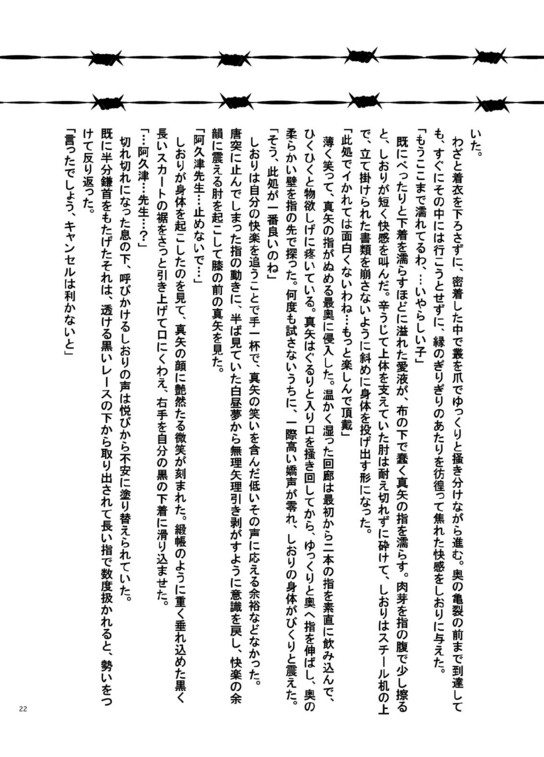 いた。
　わざと着衣を下ろさずに、密着した中で叢を爪でゆっくりと掻き分けながら進む。奥の亀裂の前まで到達して
も、すぐにその中には行こうとせずに、縁のぎりぎりのあたりを彷徨って焦れた快感をしおりに与えた。
「もうここまで濡れてるわ…いやらしい子」
　既にべったりと下着を濡らすほどに溢れた愛液が、布の下で蠢く真矢の指を濡らす。肉芽を指の腹で少し擦る
と、しおりが短く快感を叫んだ。辛うじて上体を支えていた肘は耐え切れずに砕けて、しおりはスチール机の上
で、立て掛けられた書類を崩さないように斜めに身体を投げ出す形になった。
「此処でイかれては面白くないわね…もっと楽しんで頂戴」
　薄く笑って、真矢の指がぬめる最奥に侵入した。温かく湿った回廊は最初から二本の指を素直に飲み込んで、
ひくひくと物欲しげに疼いている。真矢はぐるりと入り口を掻き回してから、ゆっくりと奥へ指を伸ばし、奥の
柔らかい壁を指の先で探った。何度も試さないうちに、一際高い嬌声が零れ、しおりの身体がびくりと震えた。
「そう、此処が一番良いのね」
　しおりは自分の快楽を追うことで手一杯で、真矢の笑いを含んだ低いその声に応える余裕などなかった。
唐突に止んでしまった指の動きに、半ば見ていた白昼夢から無理矢理引き剥がすように意識を戻し、快楽の余
韻に震える肘を起こして膝の前の真矢を見た。
「阿久津先生…止めないで…」
　しおりが身体を起こしたのを見て、真矢の顔に艶然たる微笑が刻まれた。緞帳のように重く垂れ込めた黒く
長いスカートの裾をさっと引き上げて口にくわえ、右手を自分の黒の下着に滑り込ませた。
「…阿久津…先生…？」
　切れ切れになった息の下、呼びかけるしおりの声は悦びから不安に塗り替えられていた。
　既に半分鎌首をもたげたそれは、透ける黒いレースの下から取り出されて長い指で数度扱かれると、勢いをつ
けて反り返った。
「言ったでしょう、キャンセルは利かないと」
22